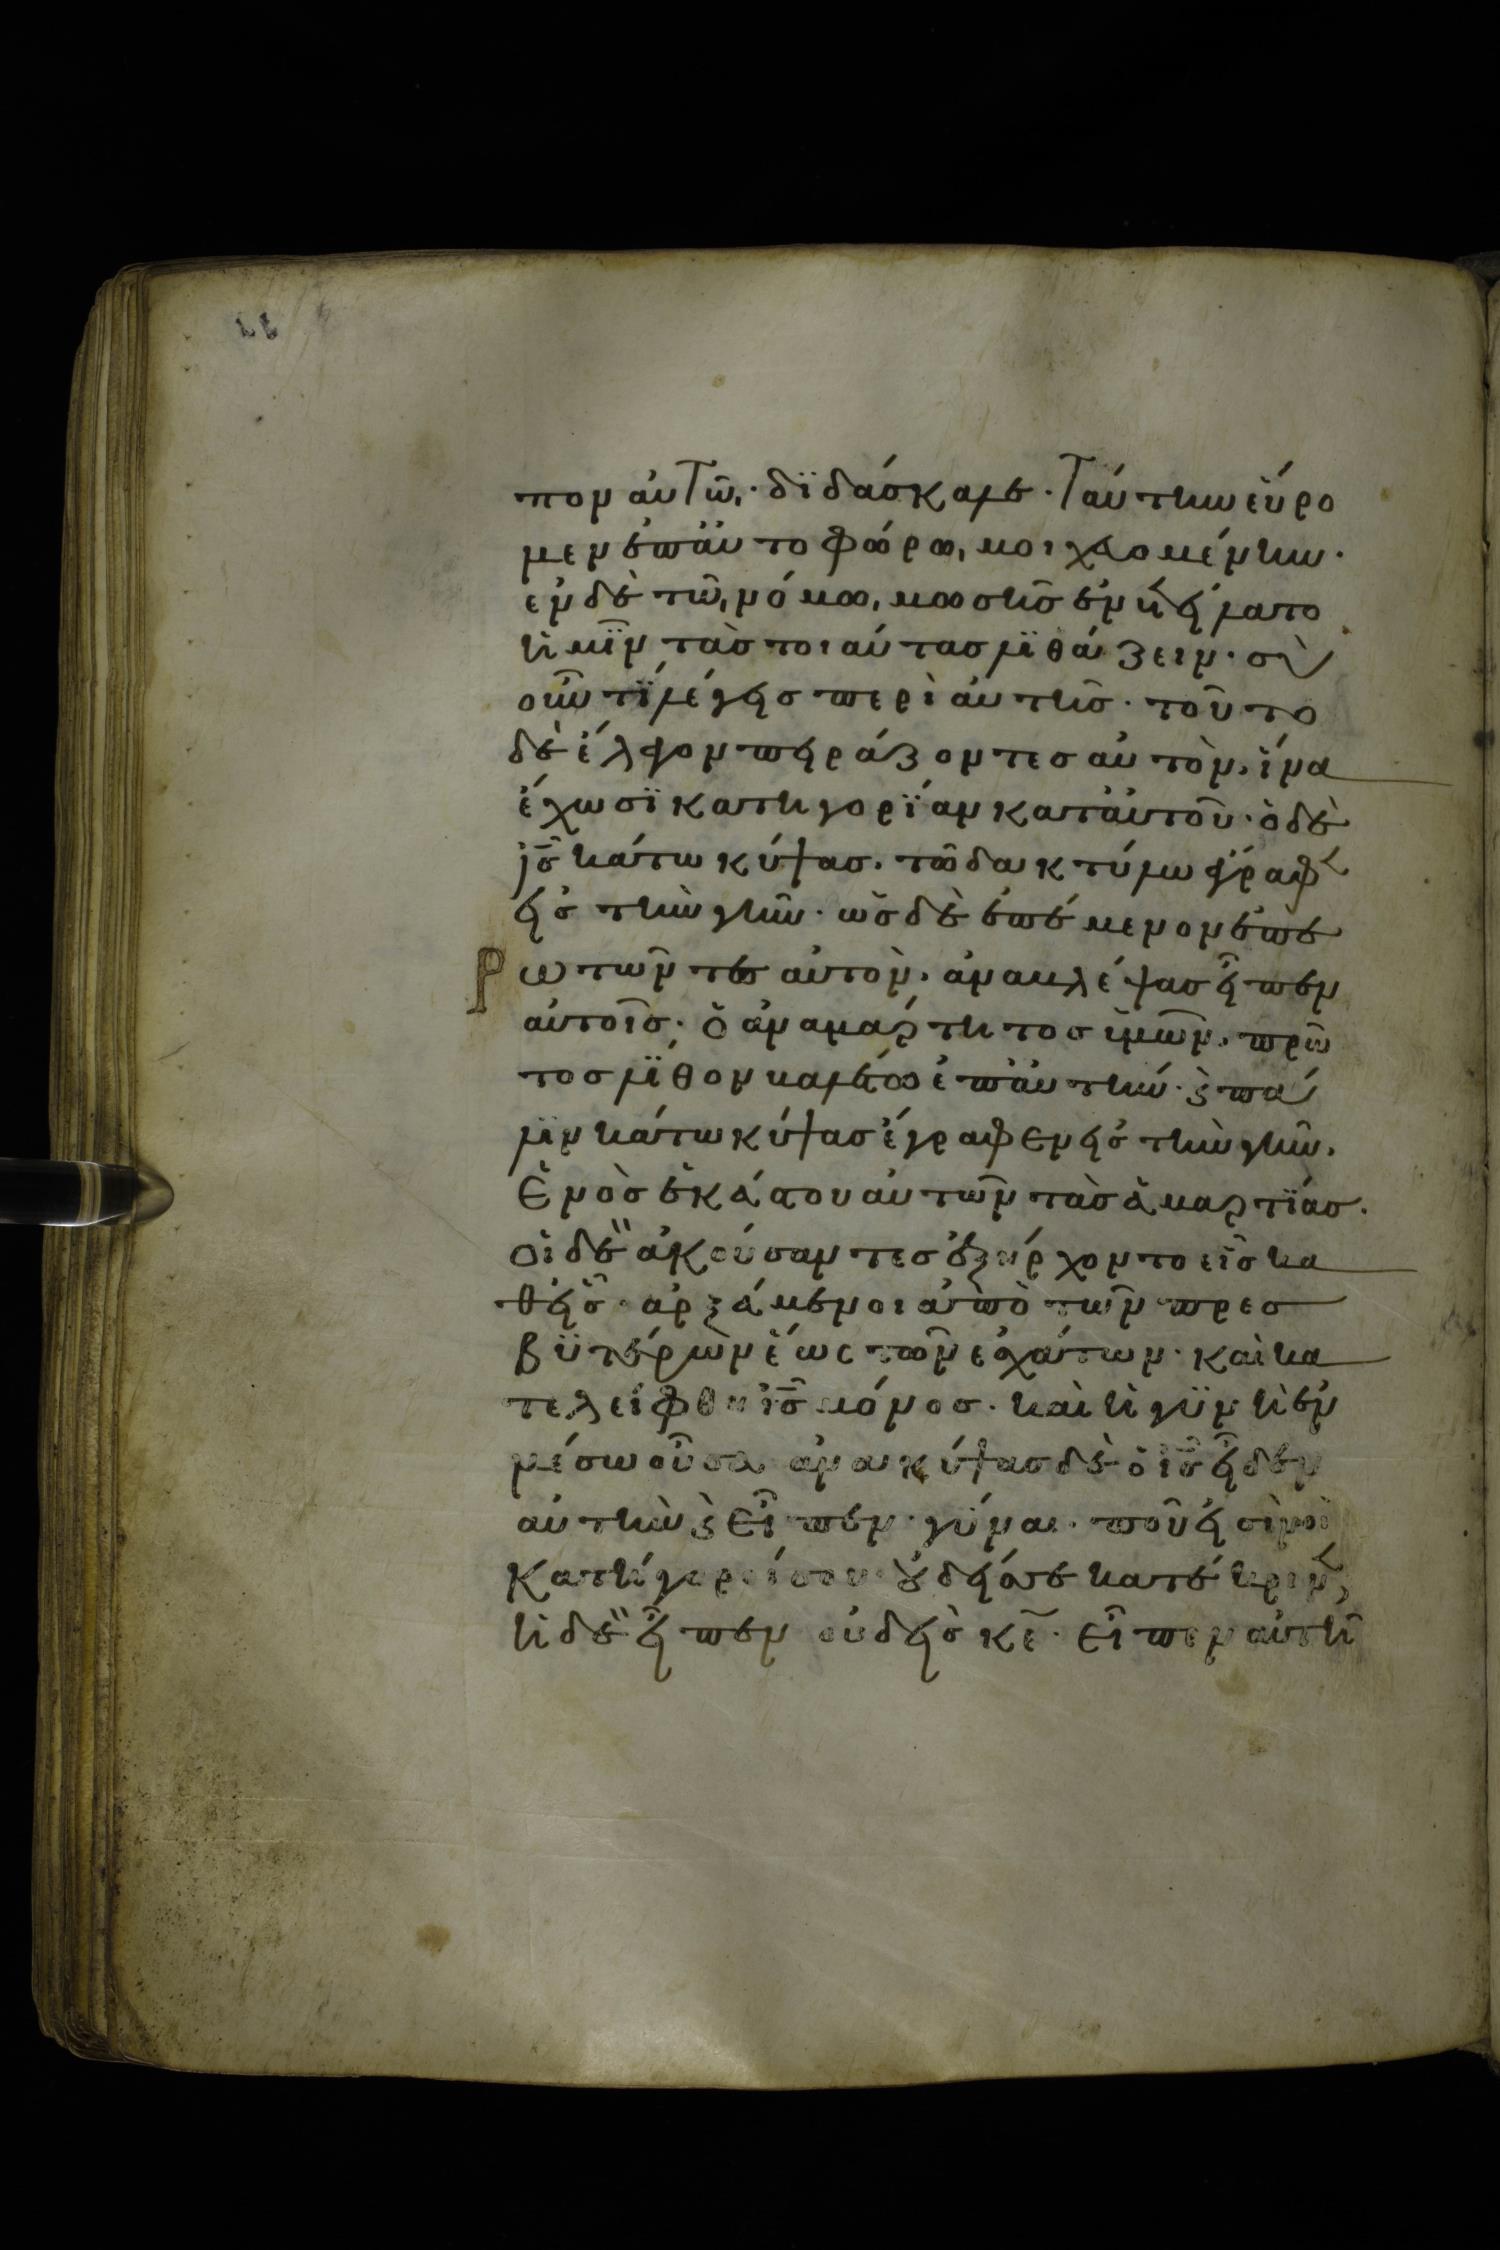 πον αυτῶ· δϊδάσκαλε· ταύτην εὕρο
μεν ἐπ ἀυτοφόρω, μοιχαομένην·
ἐν δὲ τῶ νόμω, μωσῆσ ἐνετείλατο
ἡμῖν τὰσ τοιαύτασ λϊθάζειν· σὺ
οὖν τί λέγεισ περὶ ἀυτῆσ· τοῦτο
δὲ ἔλεγον πειράζοντεσ αὐτὸν, ἵνα
ἔχωσϊ κατηγορΐαν κατ ἀυτοῦ· ὁ δὲ
ι̅ς̅ κάτω κύψασ· τῶ δακτύλω ἔγραφ
εἰσ τὴν γῆν· ὡσ δὲ ἐπέμενον ἐπε
ρωτῶντεσ αὐτὸν, ἀναβλέψασ εἶπεν
αὐτοῖσ· ὁ ἀναμάρτητοσ ὑμῶν, πρῶ
τοσ λΐθον βαλέτω ἐπ ἀυτήν· ϗ πά
λϊν κάτω κύψασ ἔγραφεν εἰσ τὴν γῆν,
ἑνὸσ ἑκάστου αὐτῶν τὰσ ἁμαρτΐασ·
οἱ δὲ ἀκούσαντεσ ἐξήρχοντο εἷσ κα
θεῖσ· ἀρξάμενοι ἀπὸ τῶν πρεσ
βϋτέρων ἕως τῶν ἐσχάτων· καὶ κα
τελείφθη ι̅ς̅ μόνοσ· καὶ ἡ γϋνὴ ἐν
μέσω οὖσα ἀνακύψασ δὲ ὁ ι̅ς̅ εἶδεν
αὐτὴν ϗ εἶπεν· γύναι· ποῦ εἰσὶν οἱ
κατήγοροί σου· οὐδείσ σε κατέκρινεν;
ἡ δὲ εἶπεν οὐδεὶσ κ̅ε̅· εἶπεν αὐτῆ